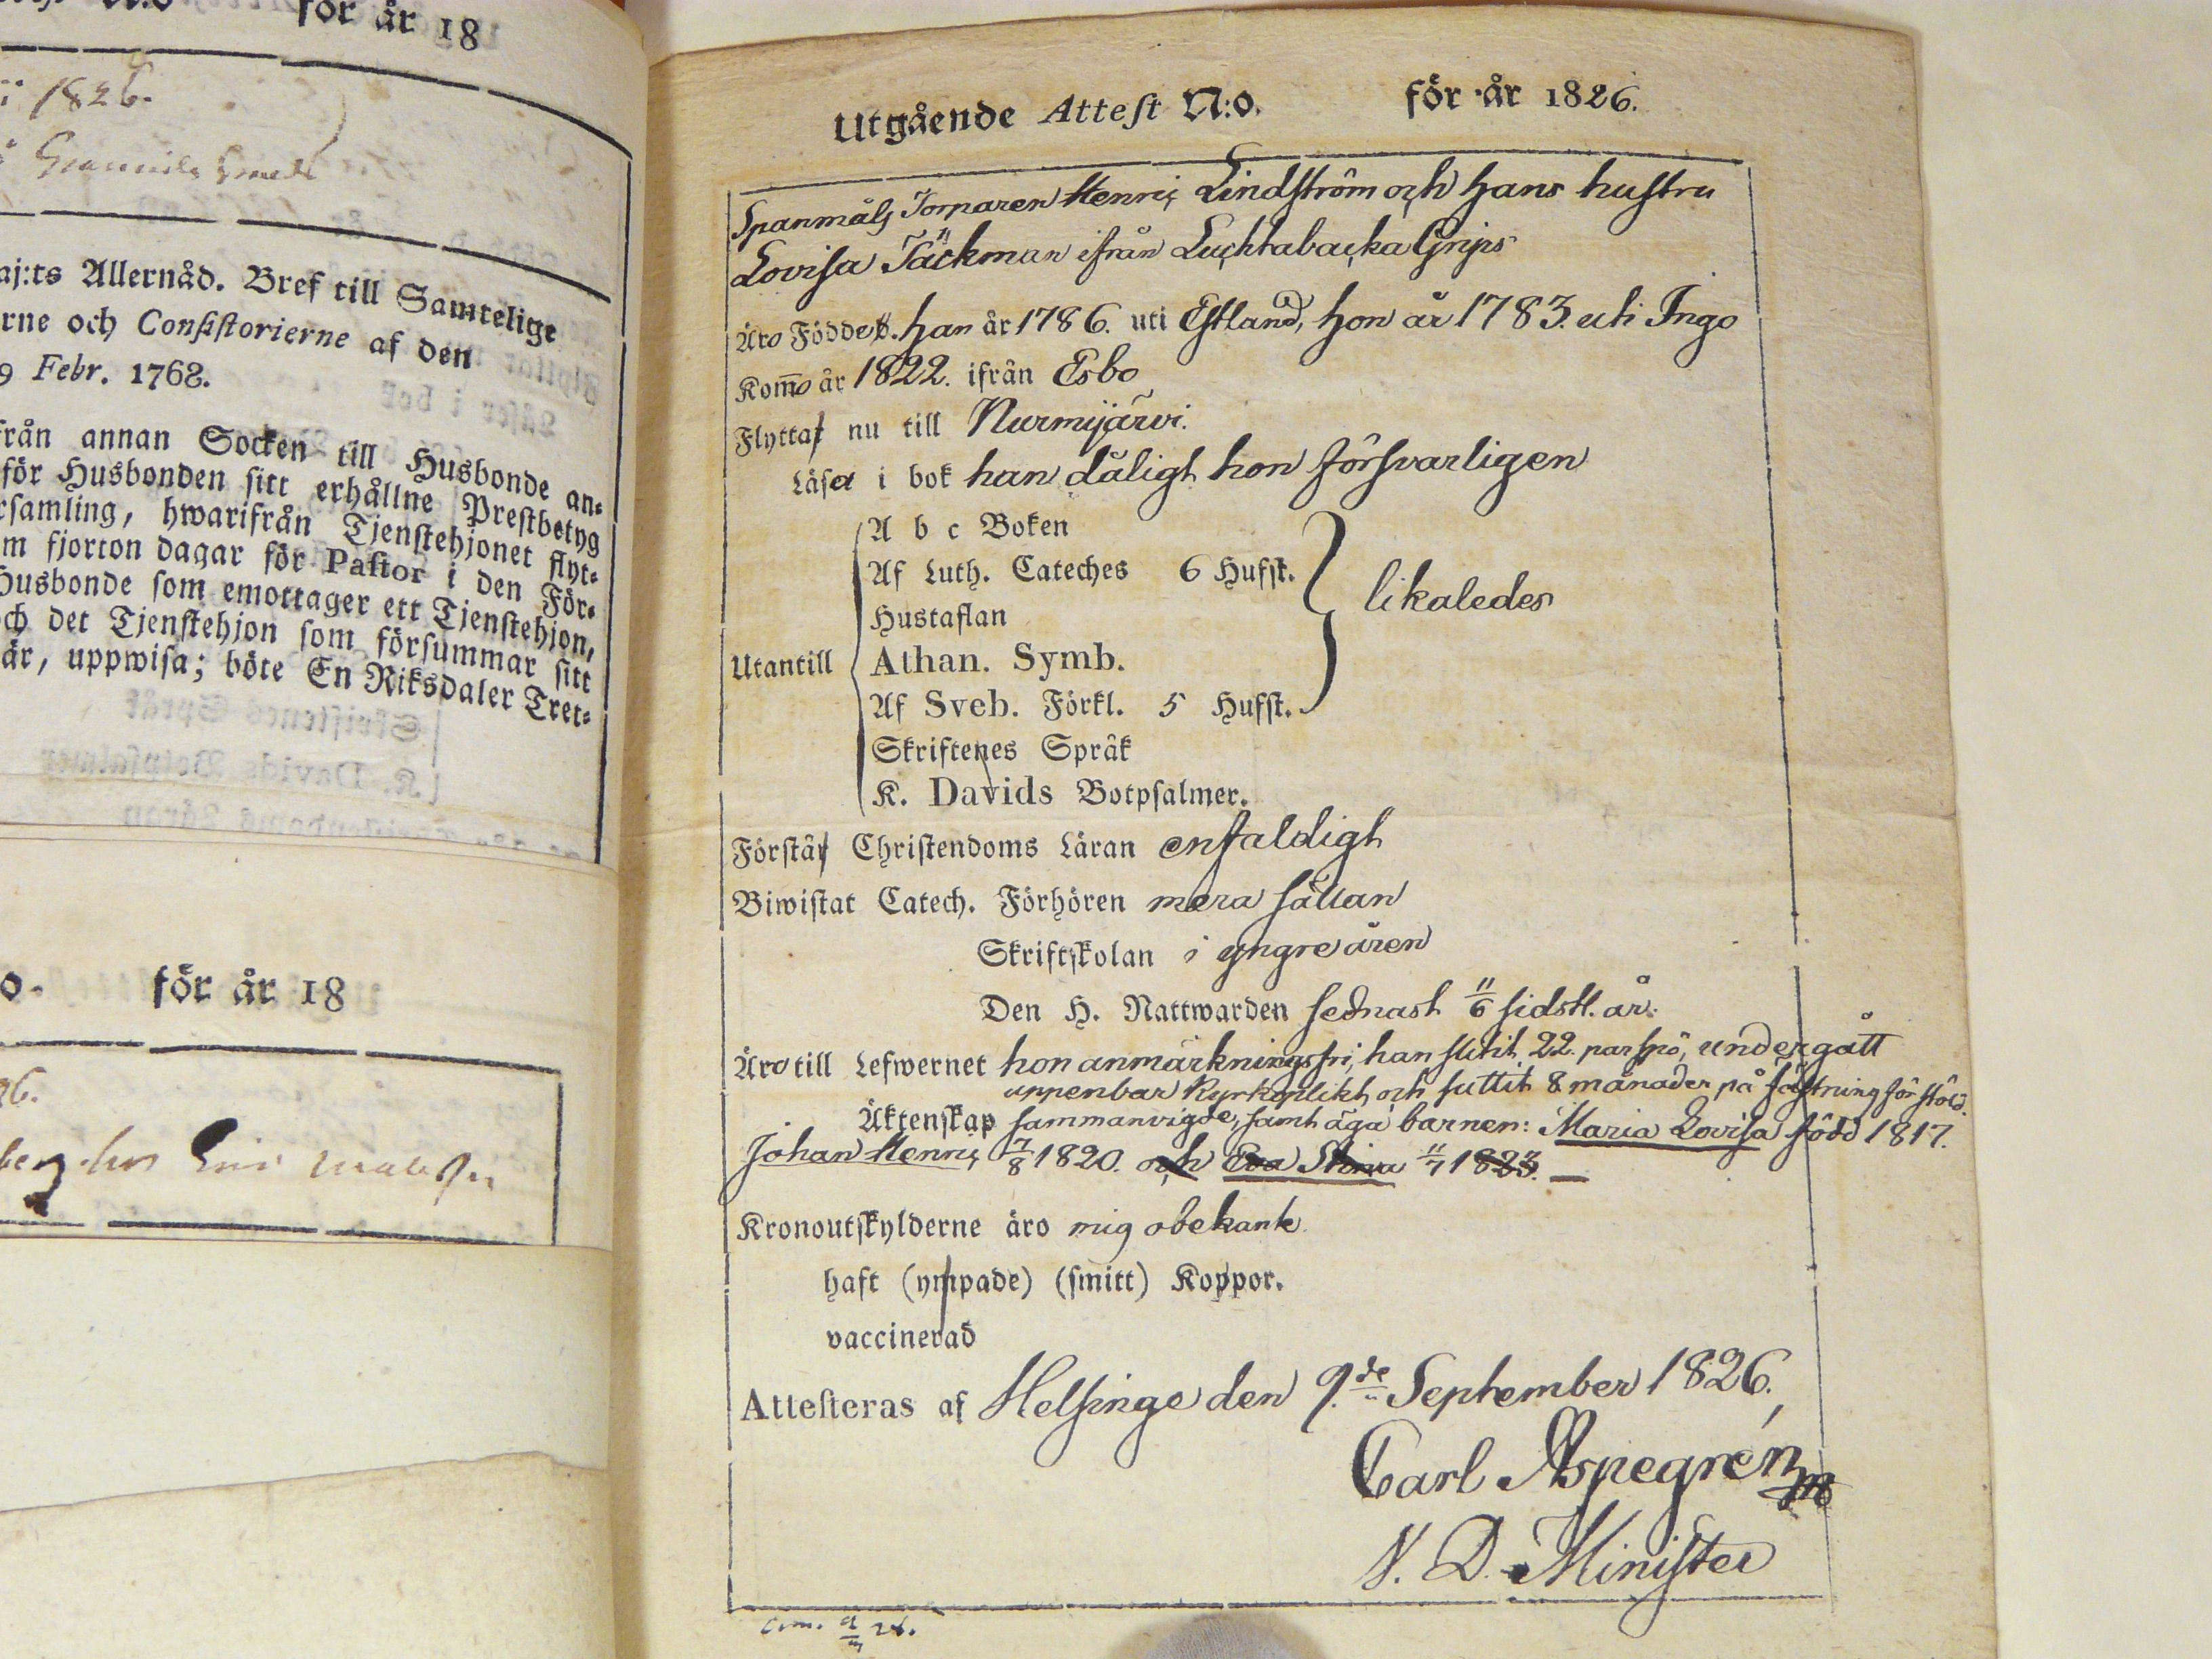 för år 18
1826.
aj:ts Allernåd. Bref till Samtelige
rne och Consistorierne af den
9 Febr. 1768.
från annan Socken till Husbonde an-
för Husbonden sitt erhållne Prestbetyg
rsamling, hwarifrån Tjenstehjonet flyt-
m fjorton dagar för Pastor i den För-
Husbonde som emottager ett Tjenstehjon,
ch det Tjenstehjon som försummar sitt
är, uppwisa; böte En Riksdaler Tret-
o. för år 18
26.
Utgående Attest N:o. för år 1826.
Spanmåls Torparen Henric Lindström och hans hustru
Lovisa Täckman ifrån Luchtabacka Grips
Äro Födde. han år 1786. uti Estland, hon år 1783. uti Ingo
Kom̄o år 1822. ifrån Esbo
Flytta nu till Nurmijärvi.
Läsa i bok han dåligt hon försvarligen
A b c Boken
Af Luth. Cateches 6 Hufst.
Hustaflan
likaledes
Utantill Athan. Symb.
Af Sveb. Förkl. 5 Hufst.
Skriftenes Språk
K. Davids Botpsalmer.
Förstå Christendoms Läran enfaldigt
Biwistat Catech. Förhören mera sällan
Skriftskolan i yngre åren
Den H. Nattwarden sednast 11/6 sidstl. år.
Äro till Lefwernet hon anmärkningsfri, han slitit 22. par spö, undergått
uppenbar Kyrkoplikt och suttit 8 månader på fästning för stöld.
Äktenskap sammanvigde, samt äga barnen: Maria Lovisa född 1817.
Johan Henric 7/8 1820. och Eva Stina 11/7 1823. —
Kronoutskylderne äro mig obekante
haft (ympade) (smitt) Koppor.
vaccinerad
Attesteras af Helsinge den 9.de September 1826.
Carl Aspegrén
V. D. Minister